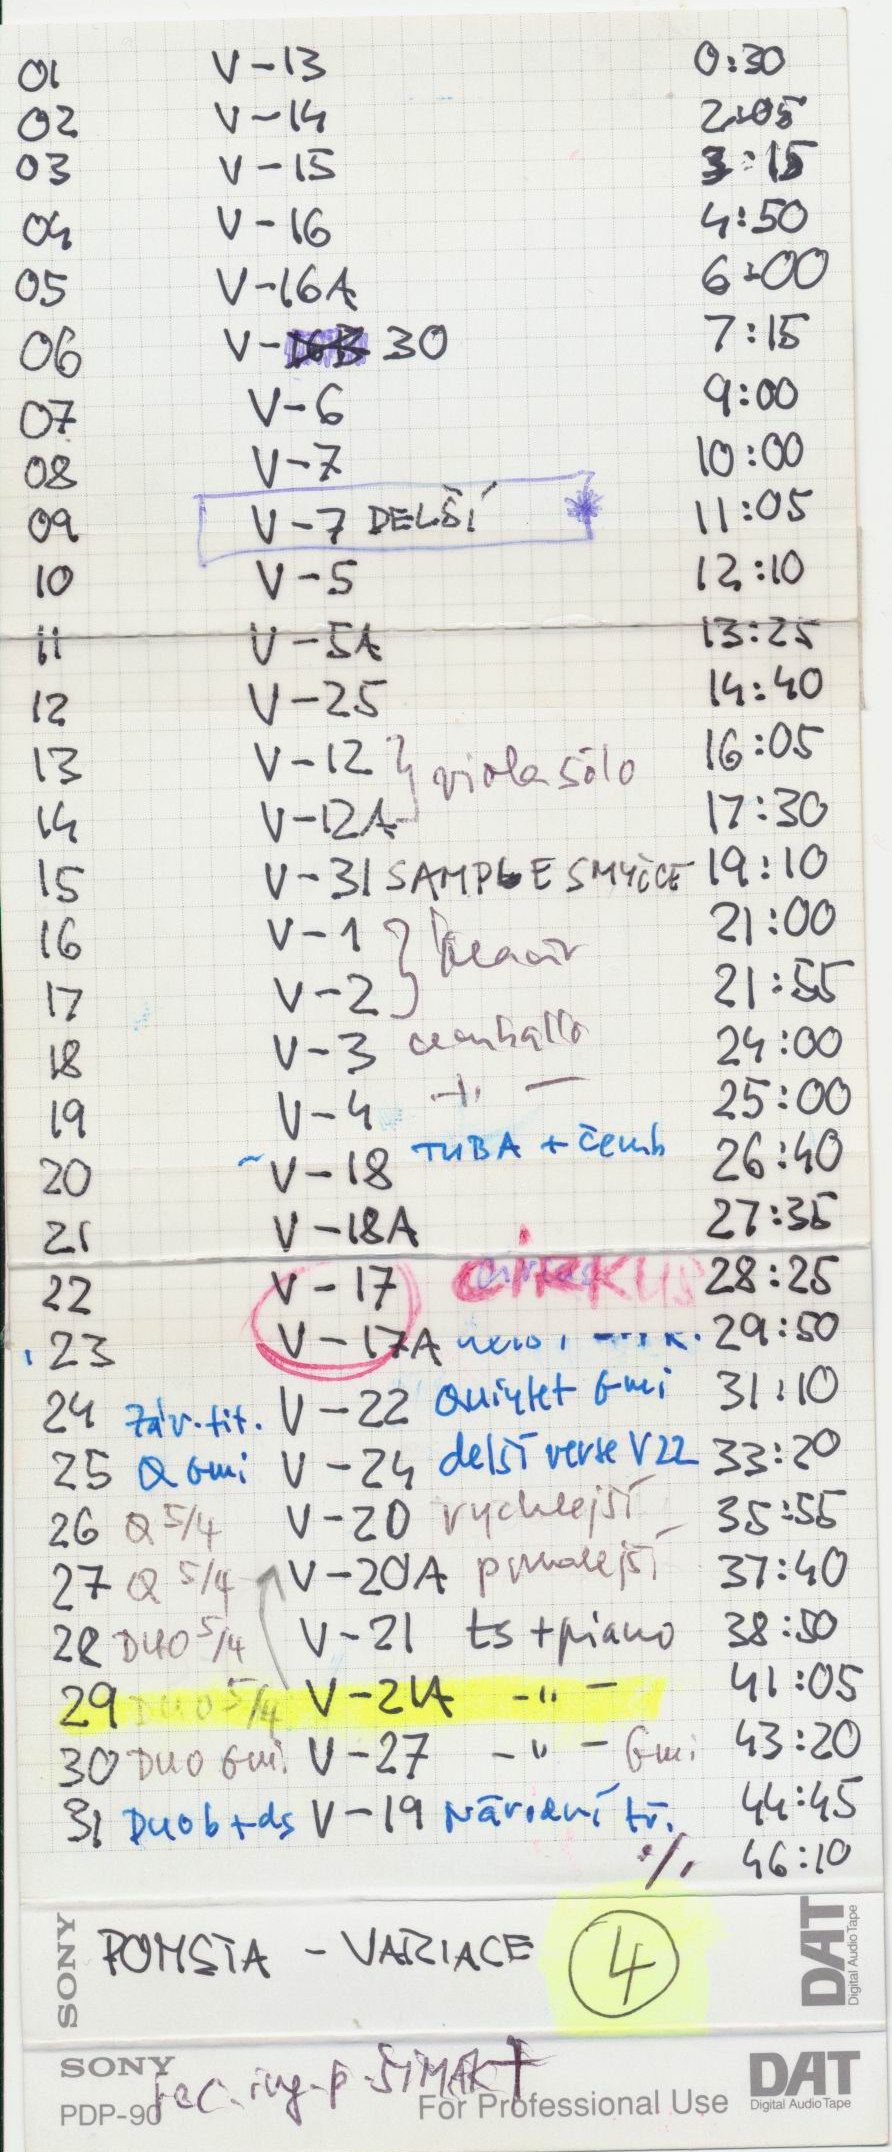 01 V-13 0:30
02 V-14 2:05
03 V-15 3:15
04 V-16 4:50
05 V-16A 6:00
06 V- 30 7:15
07 V-6 9:00
08 V-7 10:00
09 V-7 DELŠÍ * 11:05
10 V-5 12:10
11 V-5A 13:25
12 V-25 14:40
13 V-12 } viola sólo 16:05
14 V-12A 17:30
15 V-31 SAMPLE SMYČCE 19:10
16 V-1 } 21:00
17 V-2 21:55
18 V-3 cemballo 24:00
19 V-4 -"- 25:00
20 V-18 TUBA + čemb 26:40
21 V-18A 27:35
22 V-17 CIRKUS 28:25
23 V-17A 29:50
24 záv. tit. V-22 Quintet Gmi 31:10
25 Q Gmi V-24 delší verse V22 33:20
26 Q 5/4 V-20 rychlejší 35:55
27 Q 5/4 V-20A pomalejší 37:40
28 DUO 5/4 V-21 ts + piano 38:50
29 DUO 5/4 V-21A -"- 41:05
30 DUO Gmi. V-27 -"- Gmi 43:20
31 Duo b + ds V-19 Národní tř. 44:45
./. 46:10
SONY POMSTA - VARIACE 4 DAT Digital Audio Tape
SONY rec. ing. p. ŠIMÁK † DAT
PDP-90 For Professional Use Digital Audio Tape